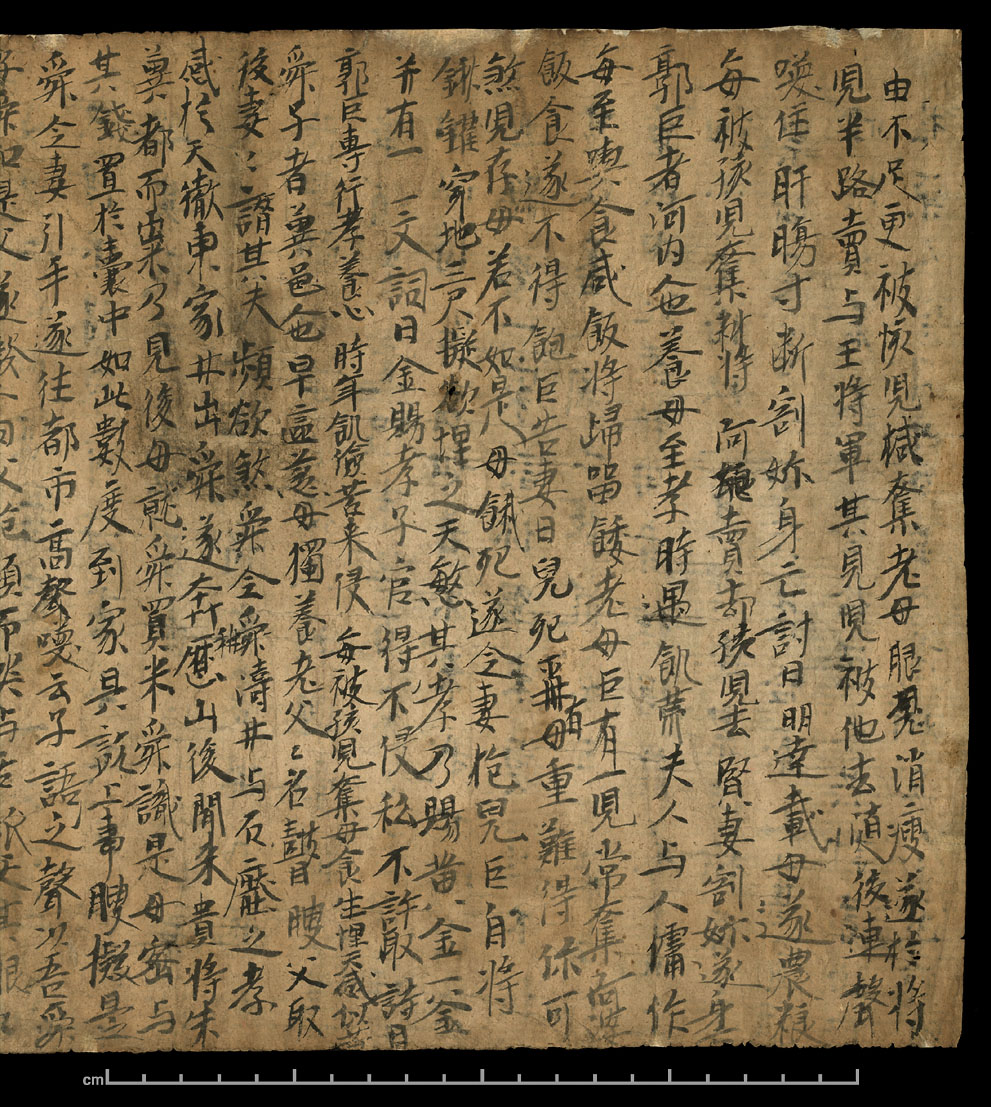 由不足更被孩兒減奪老母眼見消瘦遂於將
兒半路賣与王將軍其見兒被他去隨後連聲
喚住肝腸寸斷割妳身亡討曰明達載母遂農粮
每被孩兒奪耕將阿孃賣却孩兒去賢妻割妳遂身
郭巨者河內人也養母至孝時遇飢荒夫人与人傭作
每至喫食盛飯將歸留餧老母巨有一兒常奪
飯食遂不得飽巨告妻曰兒死再有母重難得你可
煞兒存母若不如是母餓死遂令妻抱兒巨自將
鍬钁穿地三尺擬欲埋之天愍其孝乃賜黃金一釜
并有一文詞曰金賜孝子官得不侵私不許取詩曰
郭巨專行孝養心時年飢儉苦来侵每被孩兒奪母食生埋天感似
舜子者冀邑人也早喪慈母獨養老父父名瞽瞍父取
後妻妻譖其夫頻欲煞舜令舜濤井与石壓之孝
感於天徹東家井出舜遂奔歷山後聞米貴將朱
冀都而粜乃見後母就舜買米舜識是母密与
其錢置於囊中如此數度到家具說上事瞍擬是
舜令妻引手遂往都市高聲喚云子語之聲以吾舜